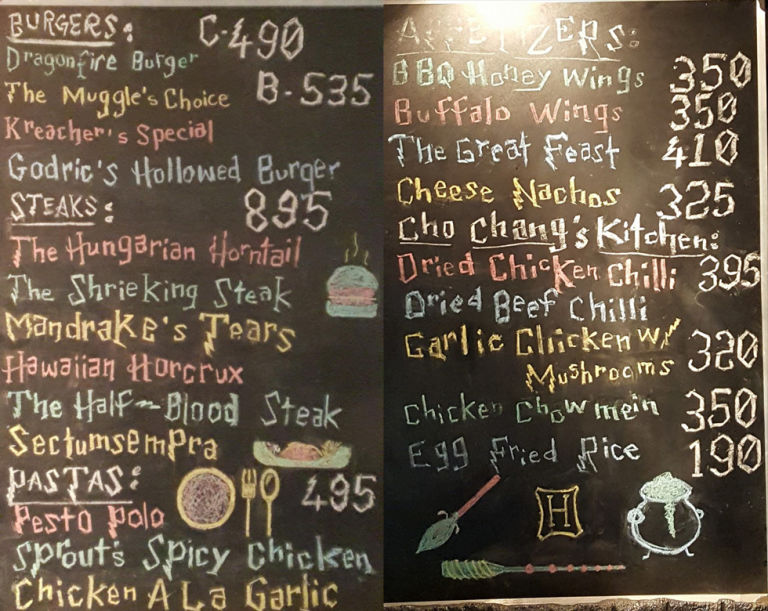 BURGERS: C-490
Dragonfire Burger
The Muggle's Choice B-535
Kreacher's Special
Godric's Hollowed Burger
STEAKS: 895
The Hungarian Horntail
The Shrieking Steak
Mandrake's Tears
Hawaiian Horcrux
The Half-Blood Steak
Sectumsempra
PASTAS: 495
Pesto Polo
Sprout's Spicy Chicken
Chicken A La Garlic
APPETIZERS:
BBQ Honey Wings 350
Buffalo Wings 350
The Great Feast 410
Cheese Nachos 325
Cho Chang's Kitchen:
Dried Chicken Chilli 395
Dried Beef Chilli
Garlic Chicken W/
Mushrooms 320
Chicken Chow mein 350
Egg Fried Rice 190
H